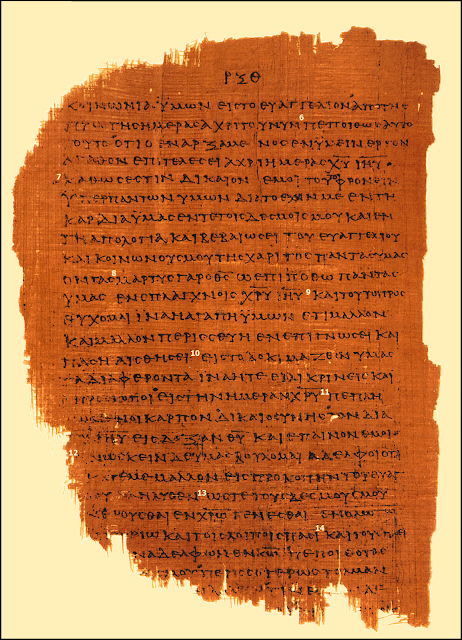 ΡΞΘ
ΚΟΙΝΩΝΙΑ ΫΜΩΝ ΕΙΣ ΤΟ ΕΥΑΓΓΕΛΙΟΝ ΑΠ ΤΗΣ
ΠΡΩΤΗΣ ΗΜΕΡΑΣ ΑΧΡΙ ΤΟΥ ΝΥΝ 6 ΠΕΠΟΙΘΩΣ ΑΥΤΟ
ΤΟΥΤΟ ΟΤΙ Ο ΕΝΑΡΞΑΜΕΝΟΣ ΕΝ ΥΜΕΙΝ ΕΡΓΟΝ
ΑΓΑΘΟΝ ΕΠΙΤΕΛΕΣΕΙ ΑΧΡΙ ΗΜΕΡΑΣ Χ̅Υ̅ Ι̅Η̅Υ̅
7 ΚΑΘΩΣ ΕΣΤΙΝ ΔΙΚΑΙΟΝ ΕΜΟΙ ΤΟΥΤΟ ΦΡΟΝΕΙΝ
ΫΠΕΡ ΠΑΝΤΩΝ ΥΜΩΝ ΔΙΑ ΤΟ ΕΧΕΙΝ ΜΕ ΕΝ ΤΗ
ΚΑΡΔΙΑ ΥΜΑΣ ΕΝ ΤΕ ΤΟΙΣ ΔΕΣΜΟΙΣ ΜΟΥ ΚΑΙ ΕΝ
ΤΗ ΑΠΟΛΟΓΙΑ ΚΑΙ ΒΕΒΑΙΩΣΕΙ ΤΟΥ ΕΥΑΓΓΕΛΙΟΥ
ΚΑΙ ΚΟΙΝΩΝΟΥΣ ΜΟΥ ΤΗΣ ΧΑΡΙΤΟΣ ΠΑΝΤΑΣ ΥΜΑΣ
ΟΝΤΑΣ 8 ΜΑΡΤΥΣ ΓΑΡ Ο Θ̅Σ̅ ΩΣ ΕΠΙΠΟΘΩ ΠΑΝΤΑΣ
ΥΜΑΣ ΕΝ ΣΠΛΑΓΧΝΟΙΣ Χ̅Ρ̅Υ̅ Ι̅Η̅Υ̅ 9 ΚΑΙ ΤΟΥΤΟ ΠΡΟΣ
ΕΥΧΟΜΑΙ ΙΝΑ Η ΑΓΑΠΗ ΫΜΩΝ ΕΤΙ ΜΑΛΛΟΝ
ΚΑΙ ΜΑΛΛΟΝ ΠΕΡΙΣΣΕΥΗ ΕΝ ΕΠΙΓΝΩΣΕΙ ΚΑΙ
ΠΑΣΗ ΑΙΣΘΗΣΕΙ 10 ΕΙΣ ΤΟ ΔΟΚΙΜΑΖΕΙΝ ΥΜΑΣ
ΤΑ ΔΙΑΦΕΡΟΝΤΑ ΙΝΑ ΗΤΕ ΕΙΛΙΚΡΙΝΕΙΣ ΚΑΙ
ΑΠΡΟΣΚΟΠΟΙ ΕΙΣ ΤΗΝ ΗΜΕΡΑΝ Χ̅Ρ̅Υ̅ 11 ΠΕΠΛΗ
ΡΩΜΕΝΟΙ ΚΑΡΠΟΝ ΔΙΚΑΙΟΣΥΝΗΣ ΤΟΝ ΔΙΑ
ΕΙΣ ΔΟΞΑΝ Θ̅Υ̅ ΚΑΙ ΕΠΑΙΝΟΝ ΕΜΟΙ
12 ΓΕΙΝΩΣΚΕΙΝ ΔΕ ΥΜΑΣ ΒΟΥΛΟΜΑΙ ΑΔΕΛΦΟΙ ΟΤΙ
ΕΜΕ ΜΑΛΛΟΝ ΕΙΣ ΠΡΟΚΟΠΗΝ ΤΟΥ ΕΥΑΓ
ΕΛΗΛΥΘΕΝ 13 ΩΣΤΕ ΤΟΥΣ ΔΕΣΜΟΥΣ ΜΟΥ
ΕΝ Χ̅Ρ̅Ω̅ ΓΕΝΕΣΘΑΙ ΕΝ ΟΛΩ
ΚΑΙ ΤΟΙΣ ΛΟΙΠΟΙΣ ΠΑΣΙ 14 ΚΑΙ ΤΟΥΣ
ΑΔΕΛΦΩΝ ΕΝ Κ̅Ω̅ ΠΕΠΟΙΘΟΤΑΣ
ΜΟΥ ΠΕΡΙΣΣΟΤΕΡΩΣ ΤΟΛΜΑΝ